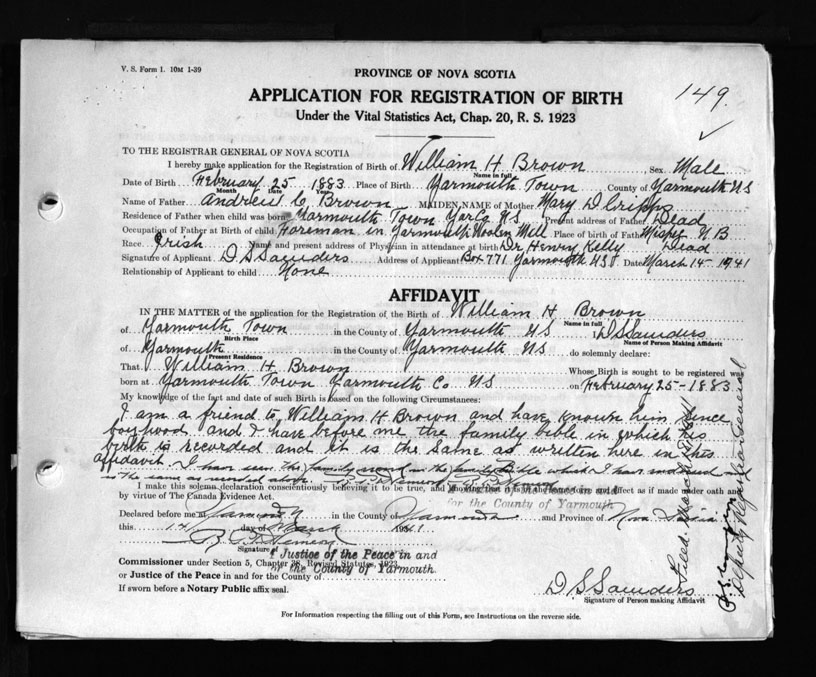 V. S. Form 1. 10M 1-39
PROVINCE OF NOVA SCOTIA
149.
APPLICATION FOR REGISTRATION OF BIRTH
Under the Vital Statistics Act, Chap. 20, R. S. 1923
TO THE REGISTRAR GENERAL OF NOVA SCOTIA
I hereby make application for the Registration of Birth of William H Brown Sex Male
Name in full
Date of Birth February 25 1883 Place of Birth Yarmouth Town County of Yarmouth NS
Month Date Year
Name of Father Andrew C Brown MAIDEN NAME of Mother Mary D Cripps
Residence of Father when child was born Yarmouth Town Yar Co NS Present address of Father Dead
Occupation of Father at Birth of child Foreman in Yarmouth Woolen Mill Place of birth of Father Mispec N B
Race Irish Name and present address of Physician in attendance at birth Dr Henry Kelly Dead
Signature of Applicant D S Saunders Address of Applicant Box 771 Yarmouth NS Date March 14 1941
Relationship of Applicant to child None
AFFIDAVIT
IN THE MATTER of the application for the Registration of the Birth of William H Brown
Name in full
of Yarmouth Town in the County of Yarmouth NS D S Saunders
Birth Place Name of Person Making Affidavit
of Yarmouth in the County of Yarmouth NS do solemnly declare:
Present Residence
That William H Brown Whose Birth is sought to be registered was
born at Yarmouth Town Yarmouth Co NS on February 25-1883
My knowledge of the fact and date of such Birth is based on the following Circumstances:
I am a friend to William H Brown and have known him since
boyhood and I have before me the family bible in which his
birth is recorded and it is the Same as written here in this
affidavit I have seen the family record in the family Bible which I have
is the same as recorded above
I make this solemn declaration conscientiously believing it to be true, and knowing that it is of the same force and effect as if made under oath and
by virtue of The Canada Evidence Act.
for the County of Yarmouth
Declared before me at Yarmouth in the County of Yarmouth and Province of Nova Scotia
this 14 day of March 1941
Signature of
Justice of the Peace in and
for the County of Yarmouth.
Commissioner under Section 5, Chapter 38, Revised Statutes, 1923
or Justice of the Peace in and for the County of
If sworn before a Notary Public affix seal.
D S Saunders
Signature of Person making Affidavit
For Information respecting the filling out of this Form, see Instructions on the reverse side.
Deputy Registrar General